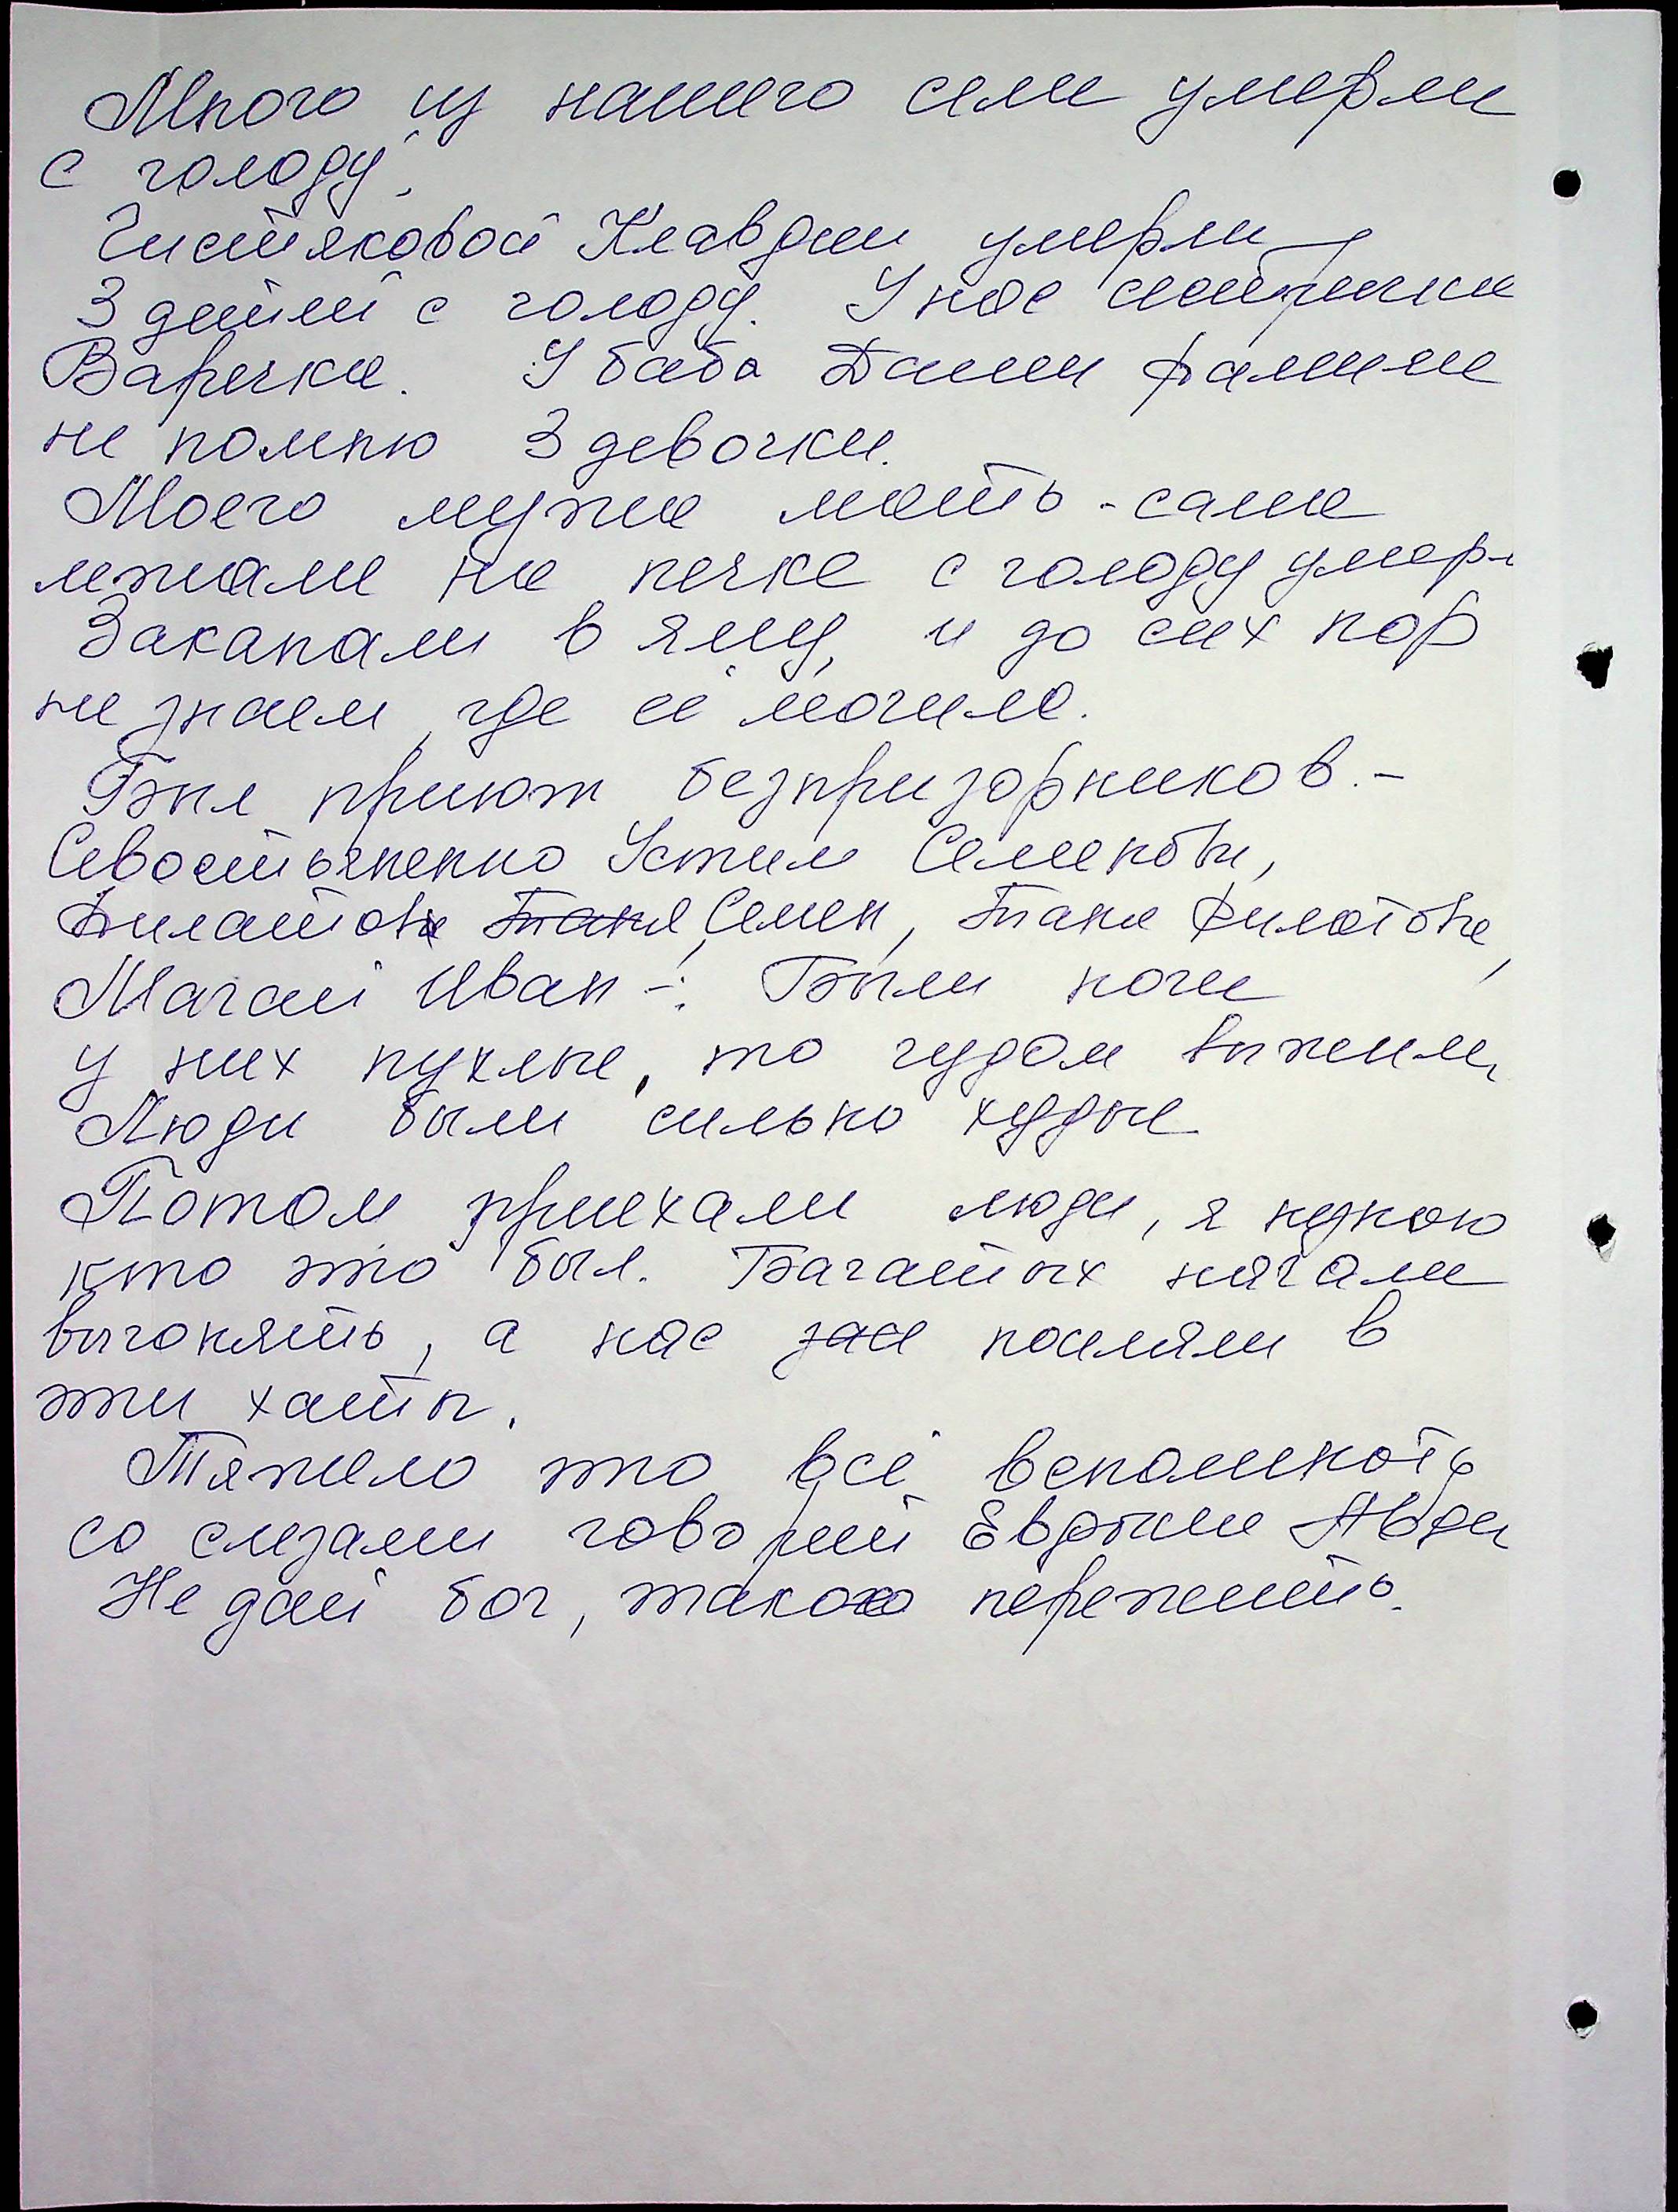 Много из нашего села умерли
с голоду.
Чистяковой Клавдии умерли
3 детей с голоду. У нас сестричка
Варечка. У баба Даши фамилие
не помню 3 девочки.
Моего мужа мать - сама
лежала на печке с голоду умер
Закапали в яму, и до сих пор
не знаем, где её могила.
Был приют безпризорников. -
Севостьяненко Устим Семенов,
Филатов Таня, Семен, Таня Филатова,
Магай Иван -. Были ноги
у них пухлые, то чудом выжили,
Люди были сильно худые
Потом приехали люди, я не знаю
кто это был. Багатых начали
выгонять, а нас зас поселяли в
эти хаты.
Тяжело это всё вспоминать
со слезами говорит Евдокия
Не дай бог, такого пережить.